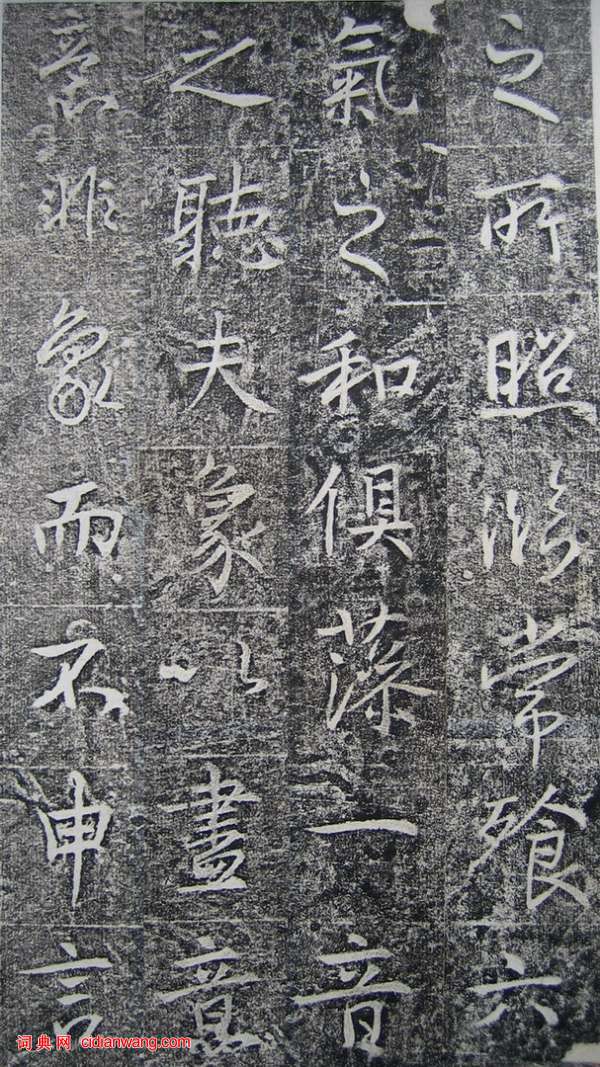 之所照臨常飱六
氣之和俱一音
之聽夫象以盡意
意非象而不申言
词典网 cidianwang.com